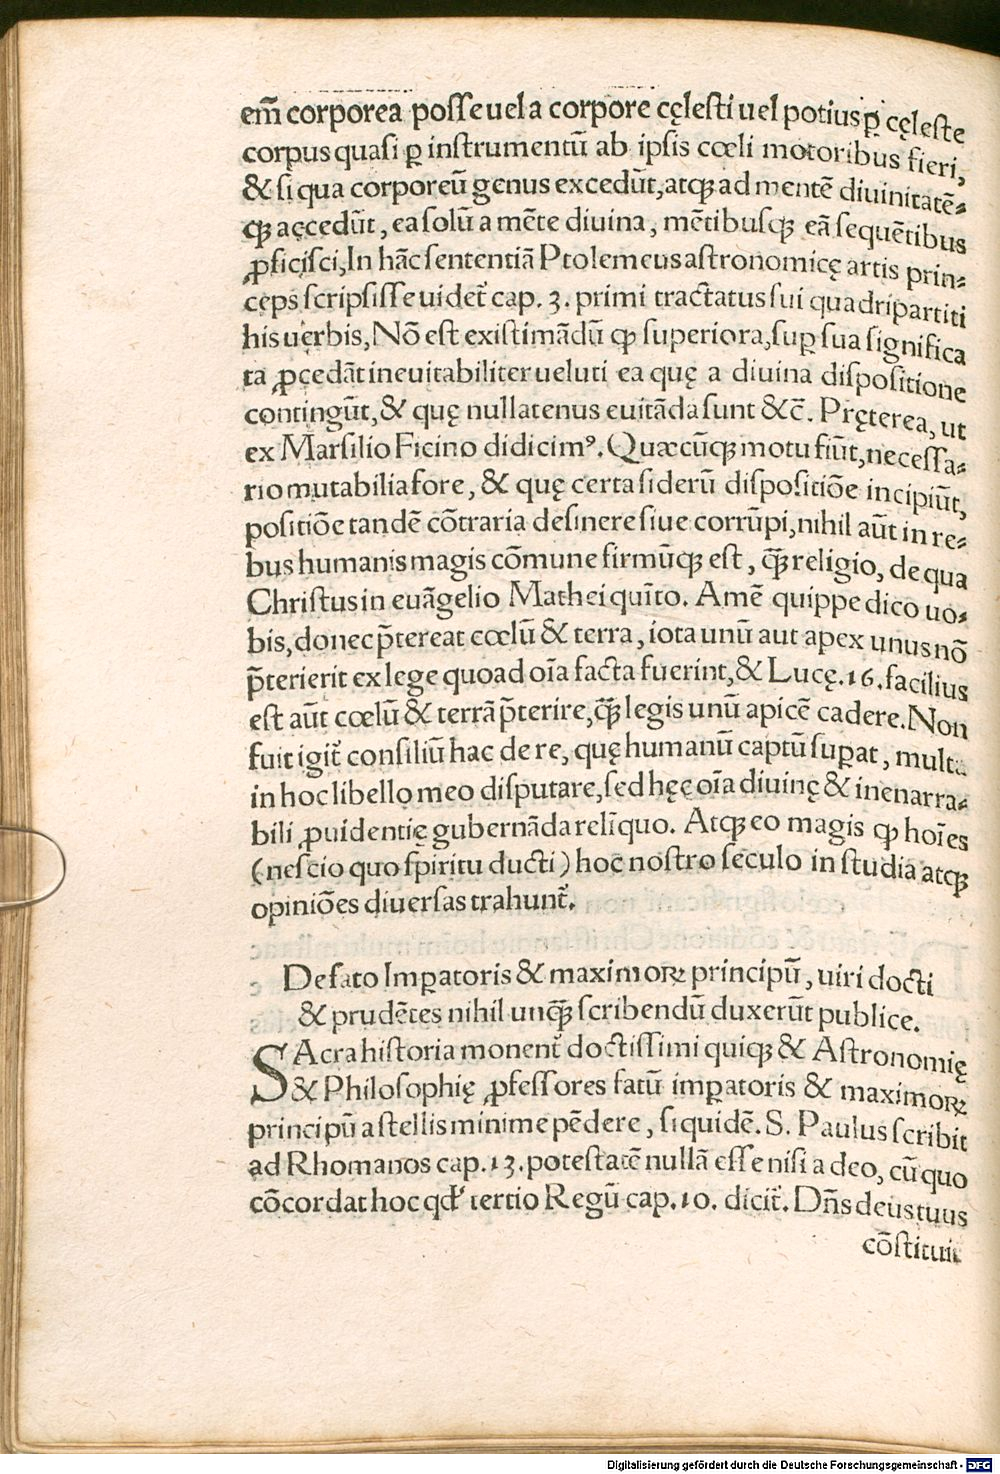 em̃ corporea posse uel a corpore cęlesti uel potius ꝑ cęleste
corpus quasi ꝑ instrumentũ ab ipsis cœli motoribus fieri,
& si qua corporeũ genus excedũt, atqꝫ ad mentẽ diuinitatẽ-
qꝫ accedũt, ea solũ a mẽte diuina, mẽtibusqꝫ eã sequẽtibus
ꝓficisci, In hãc sententiã Ptolemeus astronomicę artis prin-
ceps scripsisse uidet̃ cap. 3. primi tractatus sui quadripartiti
his uerbis, Nõ est existimãdũ ꝙ superiora, suꝑ sua significa
ta ꝓcedãt ineuitabiliter ueluti ea quę a diuina dispositione
contingũt, & quę nullatenus euitãda sunt &c̃. Pręterea, ut
ex Marsilio Ficino didicimꝰ. Quæcũqꝫ motu fiũt, necessa-
rio mutabilia fore, & quę certa siderũ dispositiõe incipiũt,
positiõe tandẽ cõtraria desinere siue corrũpi, nihil aũt in re-
bus humanis magis cõmune firmũqꝫ est, q̃ꝫ religio, de qua
Christus in euãgelio Mathei quĩto. Amẽ quippe dico uo-
bis, donec p̃tereat cœlũ & terra, iota unũ aut apex unus nõ
p̃terierit ex lege quoad oĩa facta fuerint, & Lucę. 16. facilius
est aũt cœlũ & terrã p̃terire, q̃ꝫ legis unũ apicẽ cadere. Non
fuit igit̃ consiliũ hac de re, quę humanũ captũ suꝑat, multa
in hoc libello meo disputare, sed hęc oĩa diuinę & inenarra-
bili ꝓuidentię gubernãda relĩquo. Atqꝫ eo magis ꝙ hoĩes
(nescio quo sp̃iritu ducti) hoc nostro seculo in studia atqꝫ
opiniões diuersas trahunt̃.
De fato Imꝑatoris & maximoꝝ principũ, uiri docti
& prudẽtes nihil unq̃ꝫ scribendũ duxerũt publice.
SAcra historia monent̃ doctissimi quiqꝫ & Astronomię
& Philosophię ꝓfessores fatũ imꝑatoris & maximoꝝ
principũ a stellis minime pẽdere, siquidẽ. S. Paulus scribit
ad Rhomanos cap. 13. potestatẽ nullã esse nisi a deo, cũ quo
cõcordat hoc qd' tertio Regũ cap. 10. dicit̃. Dñs deus tuus
cõstituit
Digitalisierung gefördert durch die Deutsche Forschungsgemeinschaft - DFG